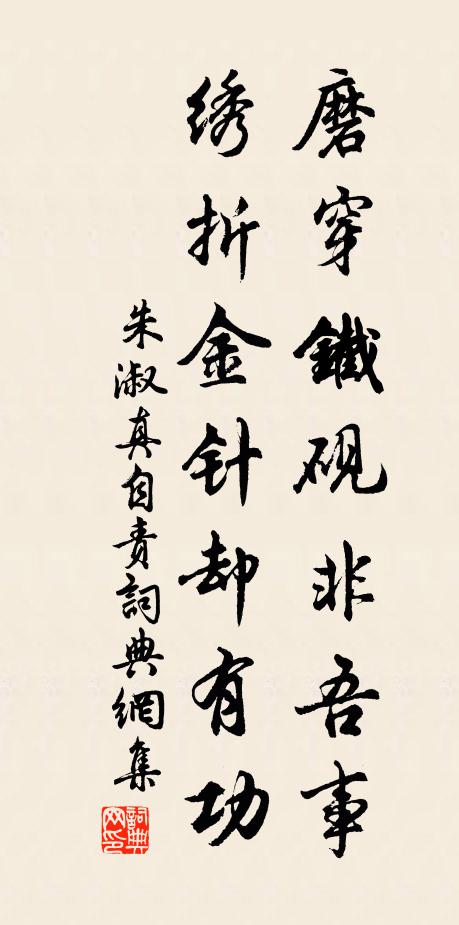 磨穿鐵硯非吾事
绣折金针却有功
朱淑真自责詞典網集
詞典网印